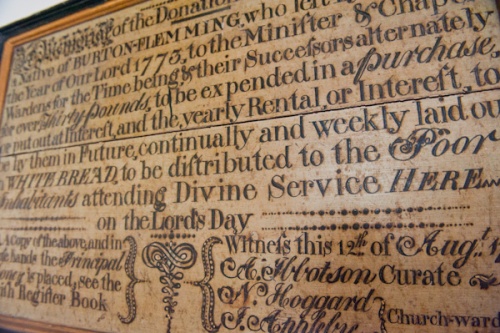 of the Donation
Native of BURTON-FLEMMING, who left
the Year of Our Lord 1773, to the Minister & Chapel
Wardens for the Time being & their Successors alternately
for ever Thirty Pounds, to be expended in a purchase,
or put out at Interest, and the yearly Rental, or Interest, to
be by them in Future, continually and weekly laid out
in WHITE BREAD, to be distributed to the Poor
Inhabitants attending Divine Service HERE
on the Lord's Day
A Copy of the above, and in
hands the Principal
is placed, see the
Register Book
Witness this 12th. of Augt.
A. Ibbotson Curate
N. Hoggard
J. Appleby
Church-ward